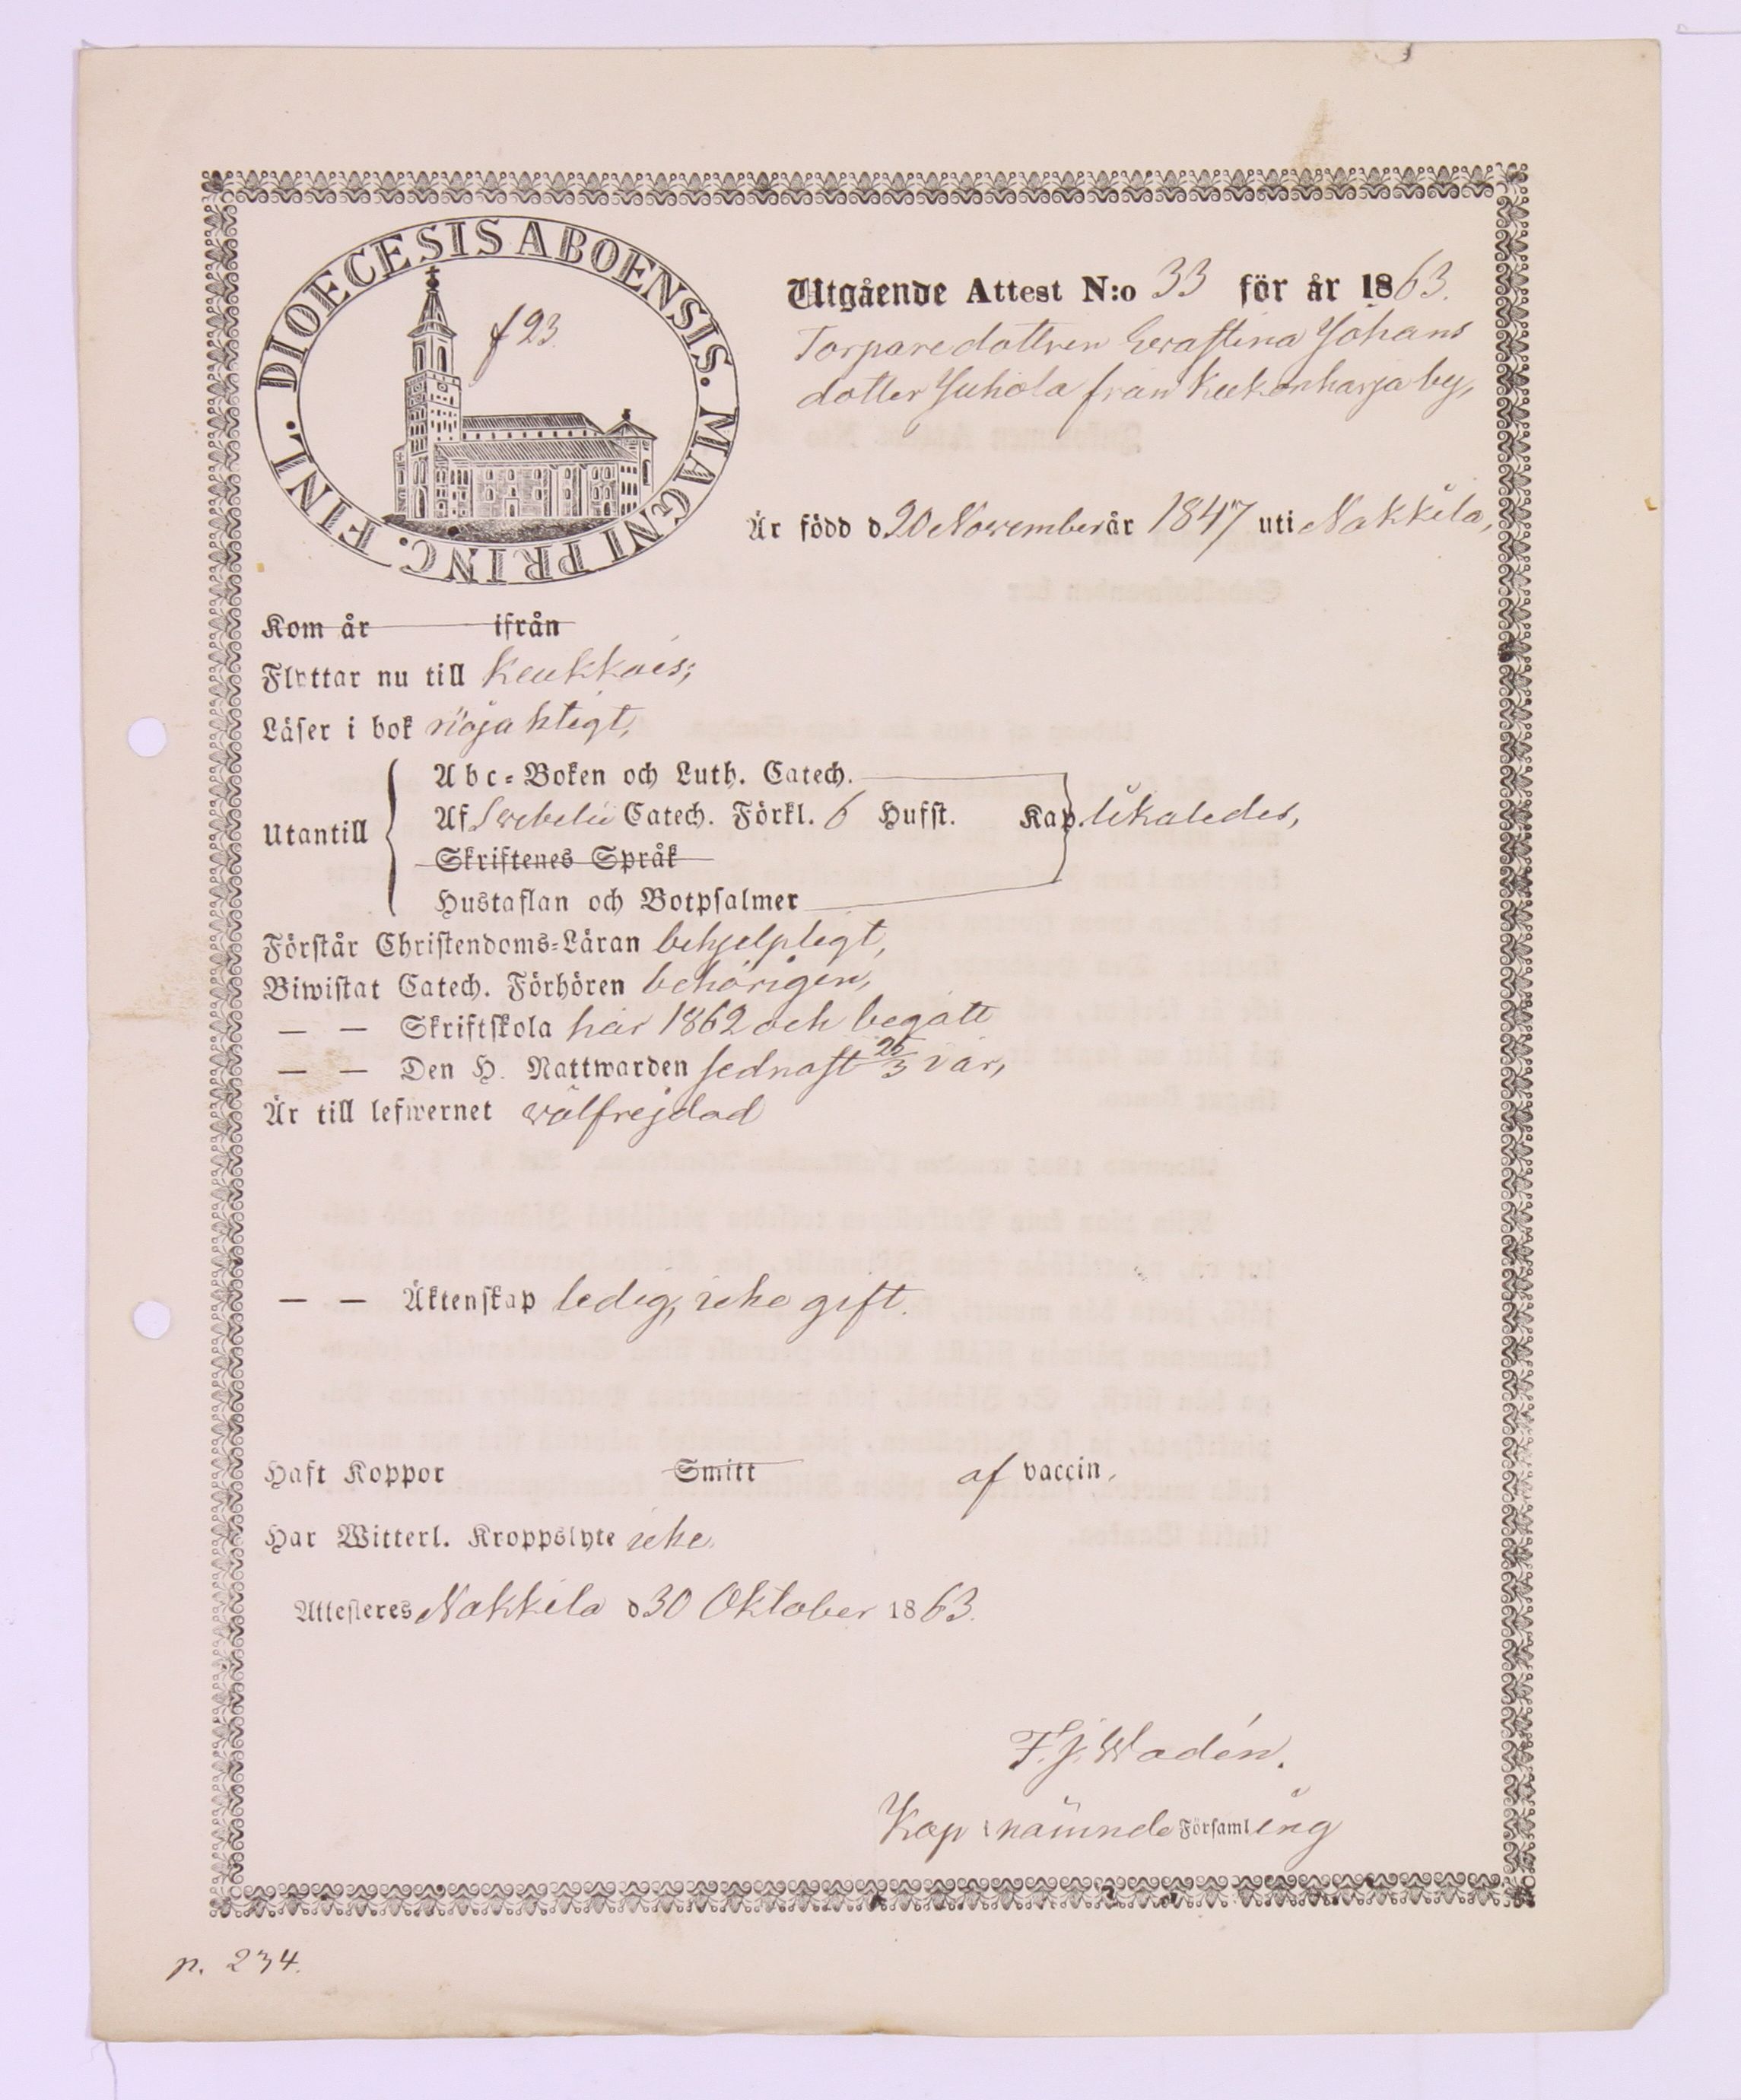 DIOECESIS ABOENSIS. MAGNI PRINC. FINL.
f 23.
Utgående Attest N:o 33 för år 1863.
Torparedottren Ewastina Johans
dotter Juhola från by,
Är född d 20 November år 1847 uti Nakkila,
Kom år ifrån
Flyttar nu till Keukkois;
Läser i bok nöjaktigt,
Abc-Boken och Luth. Catech.
Utantill Af Svebelii Catech. Förkl. 6 Hufst. Kap. likaledes,
Skriftenes Språk
Hustaflan och Botpsalmer
Förstår Christendoms-Läran behjelpligt,
Biwistat Catech. Förhören behörigen,
— — Skriftskola här 1862 och begått
— — Den H. Nattwarden sednast 25/3 i år,
Är till lefwernet wälfrejdad
— — Äktenskap ledig, icke gift.
Haft Koppor Smitt af vaccin,
Har Witterl. Kroppslyte icke.
Attesteres Nakkila d 30 Oktober 1863.
F. J. Wadén.
Kap i nämnde Församling
p. 234.